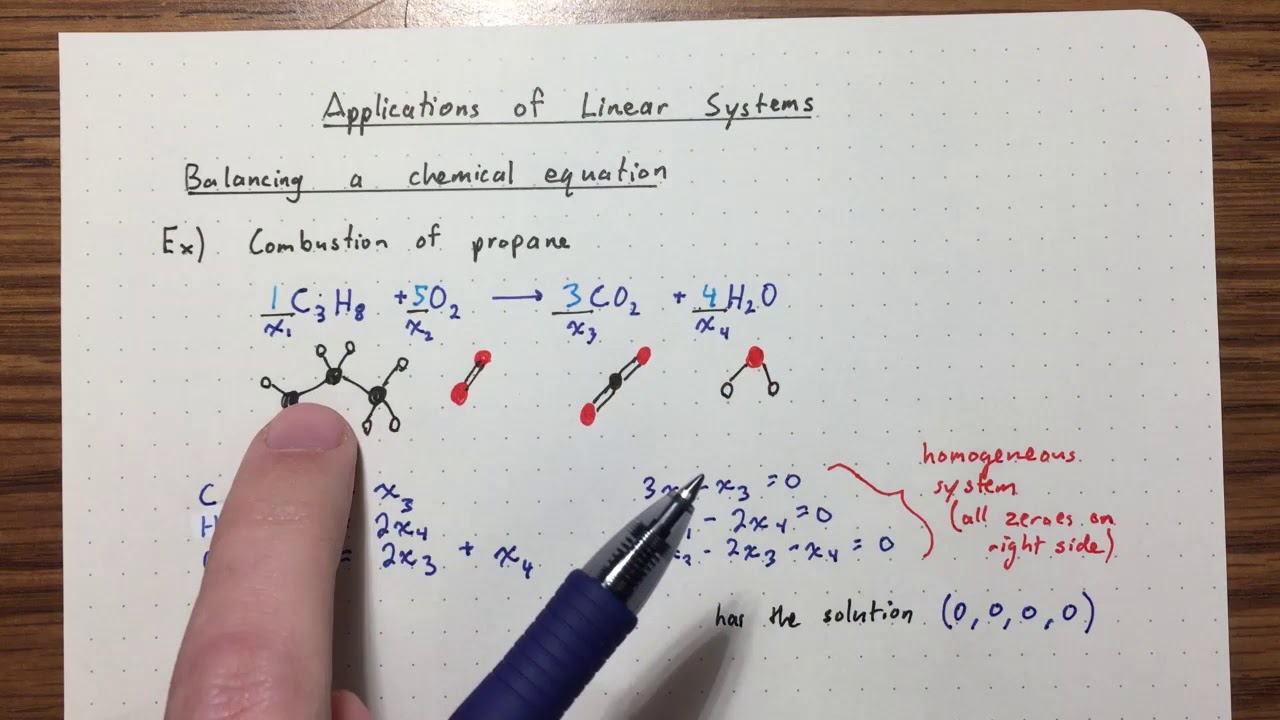 Applications of Linear Systems
Balancing a chemical equation
Ex) Combustion of propane
1 C3H8 + 5 O2 → 3 CO2 + 4 H2O
x1 x2 x3 x4
C x3
H 2x4
= 2x3 + x4
3x - x3 = 0
1 - 2x4 = 0
x2 - 2x3 - x4 = 0
homogeneous
system
(all zeroes on
right side)
has the solution (0, 0, 0, 0)